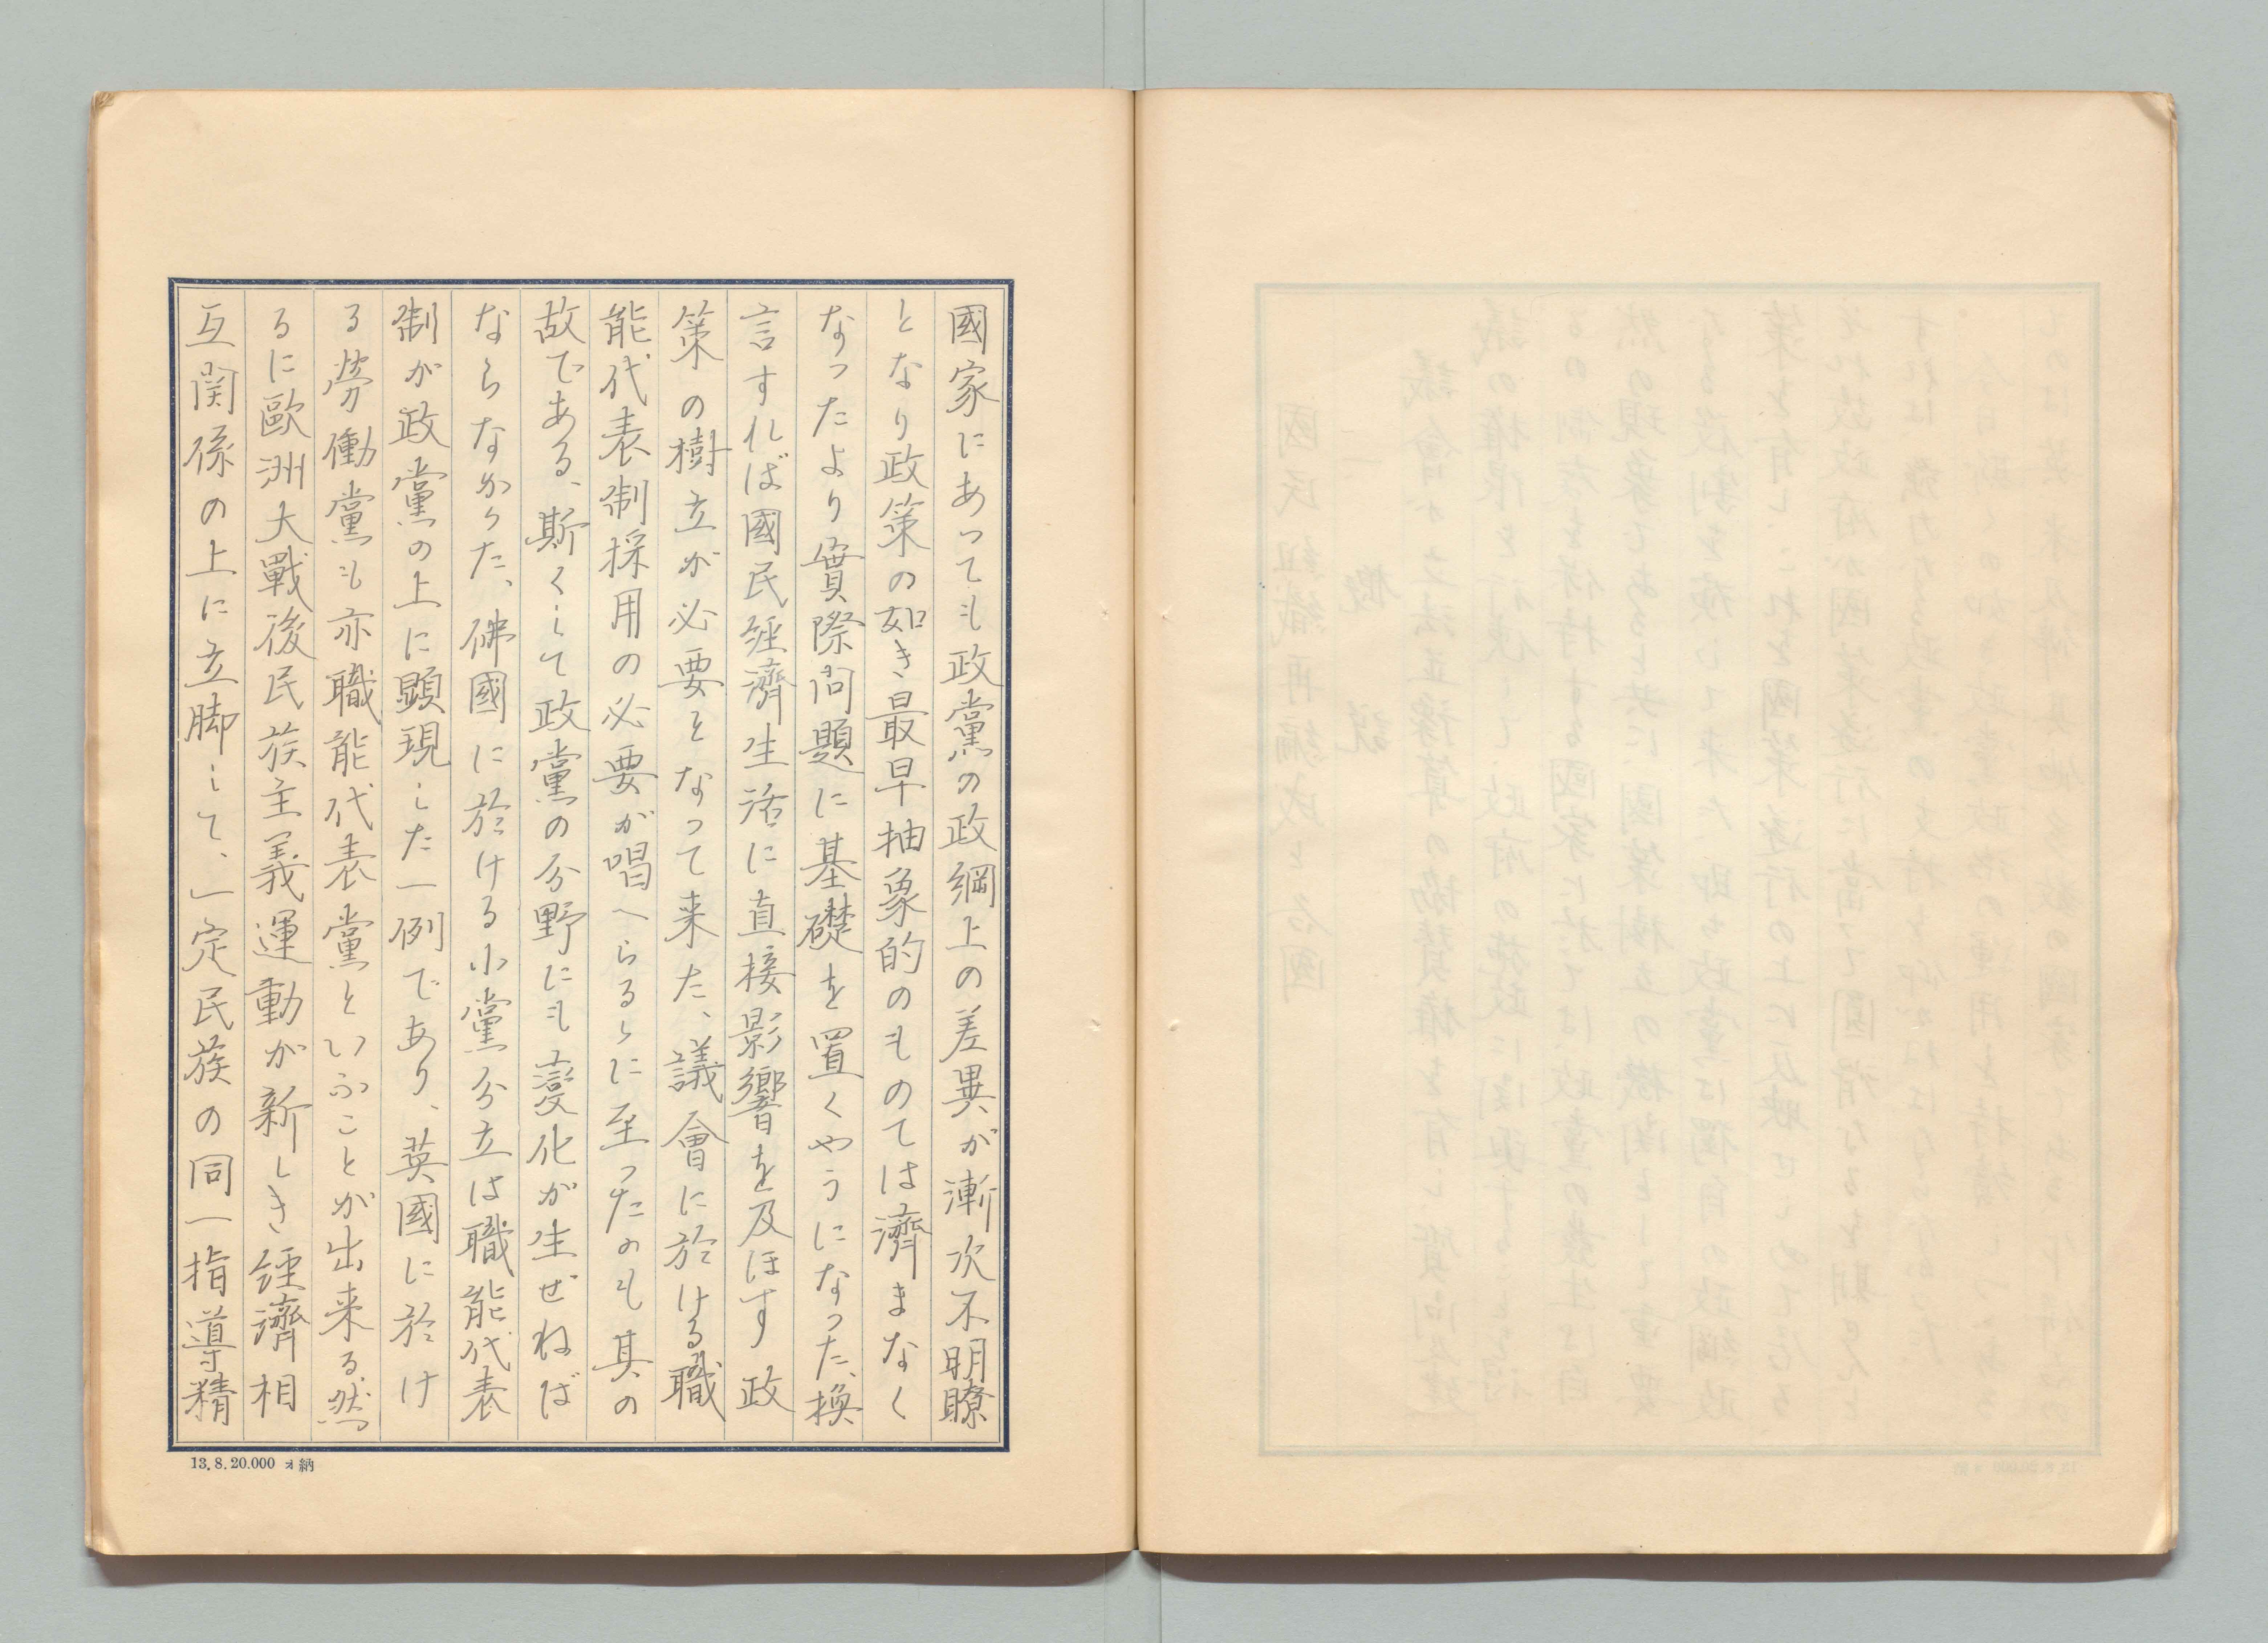 國家にあつても政黨の政綱上の差異が漸次不明瞭
となり政策の如き最早抽象的のものでは濟まなく
なつたより實際問題に基礎を置くやうになつた、換
言すれば國民經濟生活に直接影響を及ぼす政
策の樹立が必要となつて来た、議會に於ける職
能代表制採用の必要が唱へらるゝに至つたのも其の
故である、斯くして政黨の分野にも變化が生ぜねば
ならなかつた、佛國に於ける小黨分立は職能代表
制が政黨の上に顕現した一例であり、英國に於け
る勞働黨も亦職能代表黨といふことが出来る、然
るに歐洲大戰後民族主義運動が新しき經濟相
互関係の上に立脚して、一定民族の同一指導精
13.8.20.000 ヲ納